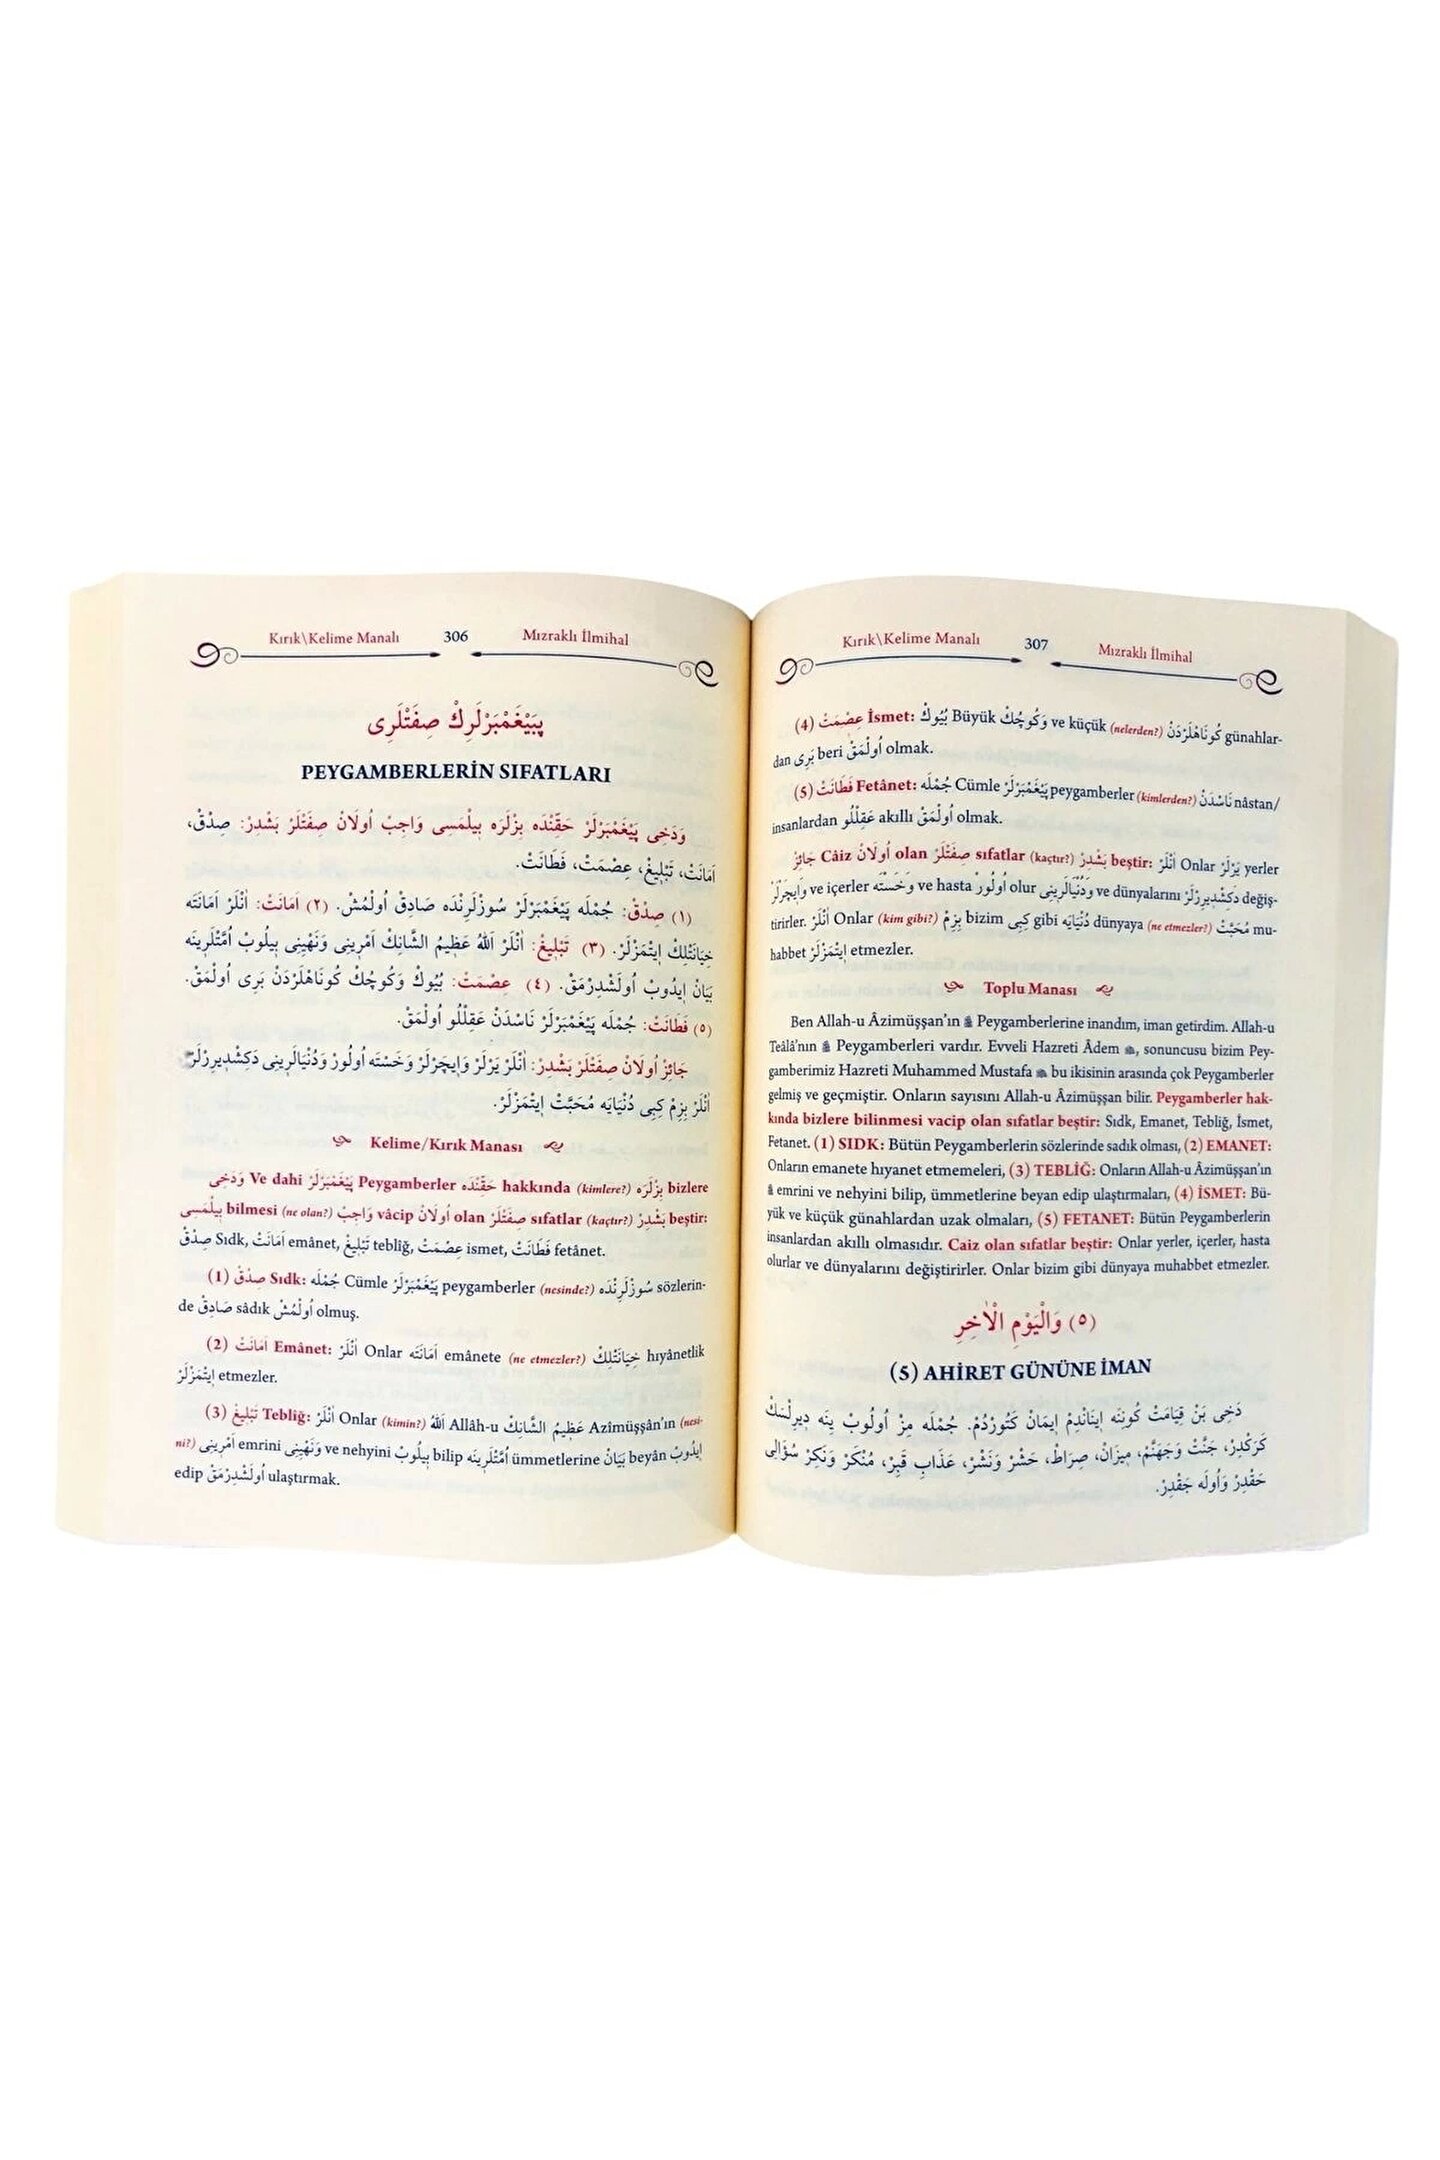 Kırık\Kelime Manalı 306 Mızraklı İlmihal
پَيْغَمْبَرْلَرِكْ صِفَتْلَرِى
PEYGAMBERLERİN SIFATLARI
وَدَخِى پَيْغَمْبَرْلَرْ حَقِّنْدَه بِزْلَرَه بِيلْمَسِى وَاجِبْ اُولَانْ صِفَتْلَرْ بَشْدِرْ: صِدْقْ،
اَمَانَتْ، تَبْلِيغْ، عِصْمَتْ، فَطَانَتْ.
(١) صِدْقْ: جُمْلَه پَيْغَمْبَرْلَرْ سُوزْلَرِنْدَه صَادِقْ اُولْمُشْ. (٢) اَمَانَتْ: اَنْلَرْ اَمَانَتَه
خِيَانَتْلِكْ اِيتْمَزْلَرْ. (٣) تَبْلِيغْ: اَنْلَرْ اَللهُ عَظِيمُ الشَّانِكْ اَمْرِينِى وَنَهْيِنِى بِيلُوبْ اُمَّتْلَرِينَه
بَيَانْ اِيدُوبْ اُولَشْدِرْمَقْ. (٤) عِصْمَتْ: بُيُوكْ وَكُوچُكْ كُونَاهْلَرْدَنْ بَرِى اُولْمَقْ.
(٥) فَطَانَتْ: جُمْلَه پَيْغَمْبَرْلَرْ نَاسْدَنْ عَقِلْلُو اُولْمَقْ.
جَائِزْ اُولَانْ صِفَتْلَرْ بَشْدِرْ: اَنْلَرْ يَرْلَرْ وَاِيچَرْلَرْ وَخَسْتَه اُولُورْ وَدُنْيَالَرِينِى دَكِشْدِيرِرْلَرْ
اَنْلَرْ بِزِمْ كِبِى دُنْيَايَه مُحَبَّتْ اِيتْمَزْلَرْ.
Kelime/Kırık Manası
وَدَخِى Ve dahi پَيْغَمْبَرْلَرْ Peygamberler حَقِّنْدَه hakkında (kimlere?) بِزْلَرَه bizlere
بِيلْمَسِى bilmesi (ne olan?) وَاجِبْ vâcip اُولَانْ olan صِفَتْلَرْ sıfatlar (kaçtır?) بَشْدِرْ beştir:
صِدْقْ Sıdk, اَمَانَتْ emânet, تَبْلِيغْ teblîğ, عِصْمَتْ ismet, فَطَانَتْ fetânet.
(1) صِدْقْ Sıdk: جُمْلَه Cümle پَيْغَمْبَرْلَرْ peygamberler (nesinde?) سُوزْلَرِنْدَه sözlerin-
de صَادِقْ sâdık اُولْمُشْ olmuş.
(2) اَمَانَتْ Emânet: اَنْلَرْ Onlar اَمَانَتَه emânete (ne etmezler?) خِيَانَتْلِكْ hıyânetlik
اِيتْمَزْلَرْ etmezler.
(3) تَبْلِيغْ Teblîğ: اَنْلَرْ Onlar (kimin?) اَللهُ Allâh-u عَظِيمُ الشَّانِكْ Azîmüşşân'ın (nesi-
ni?) اَمْرِينِى emrini وَنَهْيِنِى ve nehyini بِيلُوبْ bilip اُمَّتْلَرِينَه ümmetlerine بَيَانْ beyân اِيدُوبْ
edip اُولَشْدِرْمَقْ ulaştırmak.
Kırık\Kelime Manalı 307 Mızraklı İlmihal
(4) عِصْمَتْ İsmet: بُيُوكْ Büyük وَكُوچُكْ ve küçük (nelerden?) كُونَاهْلَرْدَنْ günahlar-
dan بَرِى beri اُولْمَقْ olmak.
(5) فَطَانَتْ Fetânet: جُمْلَه Cümle پَيْغَمْبَرْلَرْ peygamberler (kimlerden?) نَاسْدَنْ nâstan/
insanlardan عَقِلْلُو akıllı اُولْمَقْ olmak.
جَائِزْ Câiz اُولَانْ olan صِفَتْلَرْ sıfatlar (kaçtır?) بَشْدِرْ beştir: اَنْلَرْ Onlar يَرْلَرْ yerler
وَاِيچَرْلَرْ ve içerler وَخَسْتَه ve hasta اُولُورْ olur وَدُنْيَالَرِينِى ve dünyalarını دَكِشْدِيرِرْلَرْ değiş-
tirirler. اَنْلَرْ Onlar (kim gibi?) بِزِمْ bizim كِبِى gibi دُنْيَايَه dünyaya (ne etmezler?) مُحَبَّتْ mu-
habbet اِيتْمَزْلَرْ etmezler.
Toplu Manası
Ben Allah-u Âzimüşşan'ın ﷻ Peygamberlerine inandım, iman getirdim. Allah-u
Teâlâ'nın ﷻ Peygamberleri vardır. Evveli Hazreti Âdem, sonuncusu bizim Pey-
gamberimiz Hazreti Muhammed Mustafa ﷺ bu ikisinin arasında çok Peygamberler
gelmiş ve geçmiştir. Onların sayısını Allah-u Âzimüşşan bilir. Peygamberler hak-
kında bizlere bilinmesi vacip olan sıfatlar beştir: Sıdk, Emanet, Tebliğ, İsmet,
Fetanet. (1) SIDK: Bütün Peygamberlerin sözlerinde sadık olması, (2) EMANET:
Onların emanete hıyanet etmemeleri, (3) TEBLİĞ: Onların Allah-u Âzimüşşan'ın
ﷻ emrini ve nehyini bilip, ümmetlerine beyan edip ulaştırmaları, (4) İSMET: Bü-
yük ve küçük günahlardan uzak olmaları, (5) FETANET: Bütün Peygamberlerin
insanlardan akıllı olmasıdır. Caiz olan sıfatlar beştir: Onlar yerler, içerler, hasta
olurlar ve dünyalarını değiştirirler. Onlar bizim gibi dünyaya muhabbet etmezler.
(٥) وَالْيَوْمِ الْاٰخِرِ
(5) AHİRET GÜNÜNE İMAN
دَخِى بَنْ قِيَامَتْ كُونِنَه اِينَانْدِمْ اِيمَانْ كَتُورْدُمْ. جُمْلَه مِزْ اُولُوبْ يِنَه دِيرِلْسَكْ
كَرَكْدِرْ، جَنَّتْ وَجَهَنَّمْ، مِيزَانْ، صِرَاطْ، حَشْرْ وَنَشْرْ، عَذَابِ قَبِرْ، مُنْكَرْ وَنَكِرْ سُؤَالِى
حَقْدِرْ وَاُولَه جَقْدِرْ.